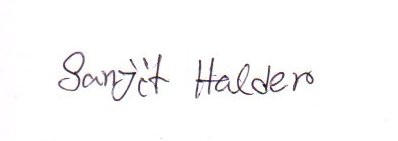 Sanjit Halder